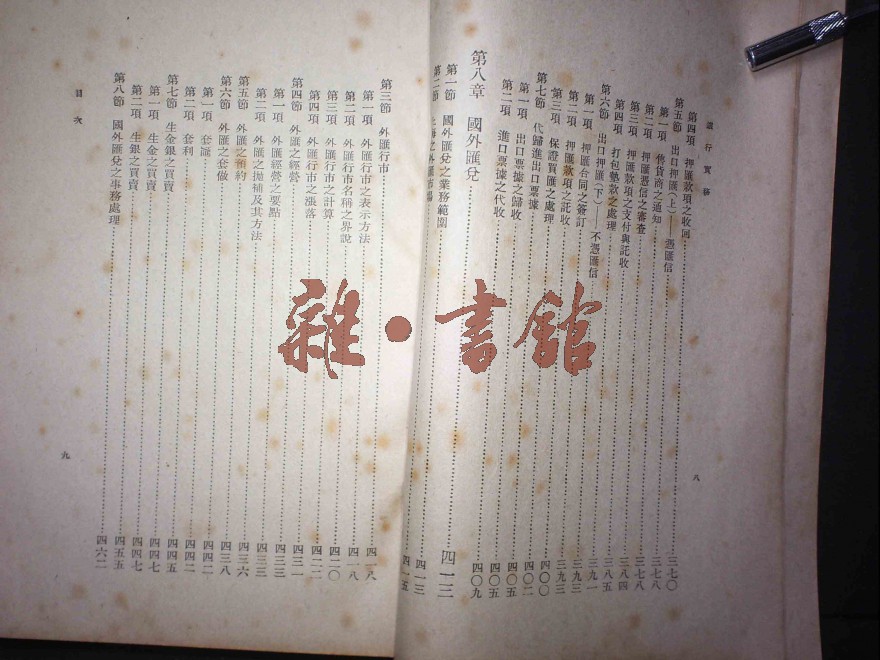 銀行實務
第四項 押匯款項之收回……三七〇
第五節 出口押匯(上)——憑匯信……三七八
第一項 售貨商之通知……三七八
第二項 押匯憑信之審查……三八四
第三項 押匯款項之支付與託收……三八五
第四項 打包墊款之處理……三九一
第六節 出口押匯(下)——不憑匯信……三九三
第一項 押匯合同之簽訂……三九三
第二項 押匯款項之託收……四〇〇
第三項 保證買匯之處理……四〇二
第七節 代歸進出口票據……四〇五
第一項 出口票據之歸收……四〇五
第二項 進口票據之代收……四〇九
第八章 國外匯兌……四一三
第一節 國外匯兌之業務範圍……四一三
第二節 上海之外匯市場……四一五
八
第三節 外匯行市……四一八
第一項 外匯行市之表示方法……四一八
第二項 外匯行市名稱之界說……四二〇
第三項 外匯行市之計算……四二二
第四項 外匯行市之漲落……四三一
第四節 外匯之經營……四三三
第一項 外匯經營之要點……四三三
第二項 外匯之拋補及其方法……四三六
第五節 外匯之預約……四三八
第六節 外匯之套做……四四二
第一項 套匯……四四二
第二項 套利……四四五
第七節 生金銀之買賣……四四七
第一項 生金之買賣……四四七
第二項 生銀之買賣……四五五
第八節 國外匯兌之事務處理……四六二
目次
九
雜·書館